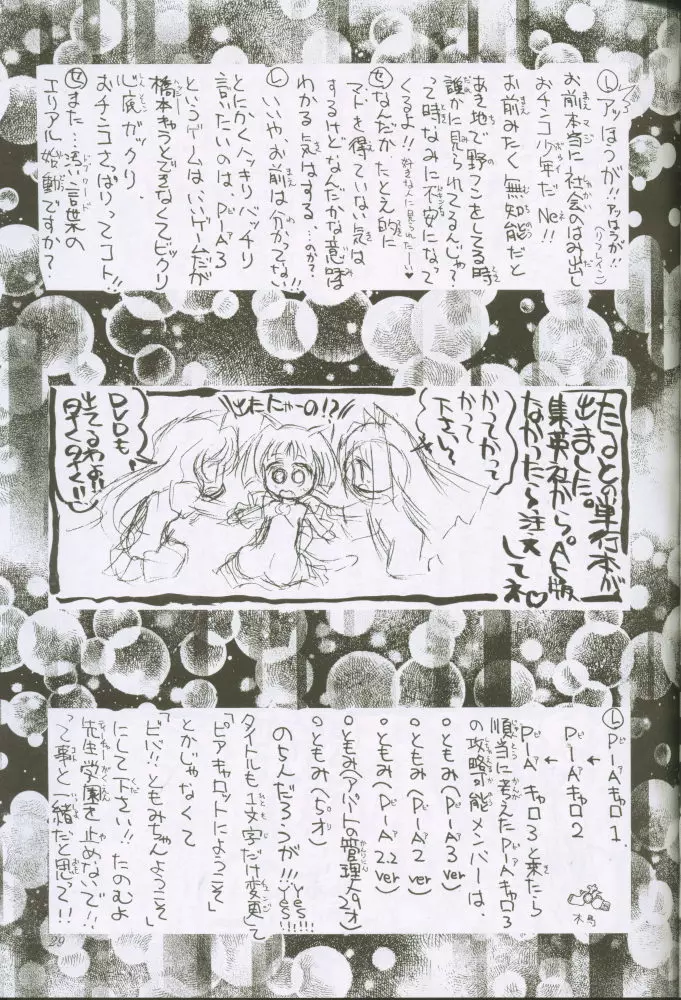 Ⓛアッほうが!!アッほうが!!(リフレイン)
お前本当に社会のはみ出し
おチンコ少年だNe!!
お前みたく無知能だと
あき地で野ぐそしてる時
誰かに見られてるんじゃ?
って時なみに不安になって
くるよ!!好きな人に見られたー♥
Ⓢなんだか、たとえ的に
マトを得ていない気は
するけどなんだかな意味は
わかる気はする…のか?
Ⓛいいや、お前は分かってない
とにかくハッキリバッチリ
言いたいのは、P=A3
というゲームは、いいゲームだが
橋本キャラできなくてビックリ
心底ガックリ、
おチンコさっぱりってコト!!
Ⓢまた…汚い言葉の
エリアル始動ですか?
たるとの単行本が
出ました。
集英社から。A5版
なかったら注文
してネ♡
かってかって
かって
下さい〜
出たにゃーの!?
DVDも
出てるわよ!!
早く早く!!
ⓁP=Aキャロ1.
↓
P=Aキャロ2
↓
P=Aキャロ3と来たら
順当に考えたP=Aキャロ3
の攻略可能メンバーは、
○ともみ(P=A3 ver)
○ともみ(P=A2 ver)
○ともみ(P=A2.2 ver)
○ともみ(アパートの管理人29才)
○ともみ(5才)
のはんだろうが!!!yes!!!yes!!!
タイトルも1文字だけ変更して
「ピアキャロットにようこそ」
とかじゃなくて
「ピバ!!ともみちゃんようこそ」
にして下さい!!たのむよ
先生、学園を止めないで!!
って事と一緒だと思って!!
木馬
29